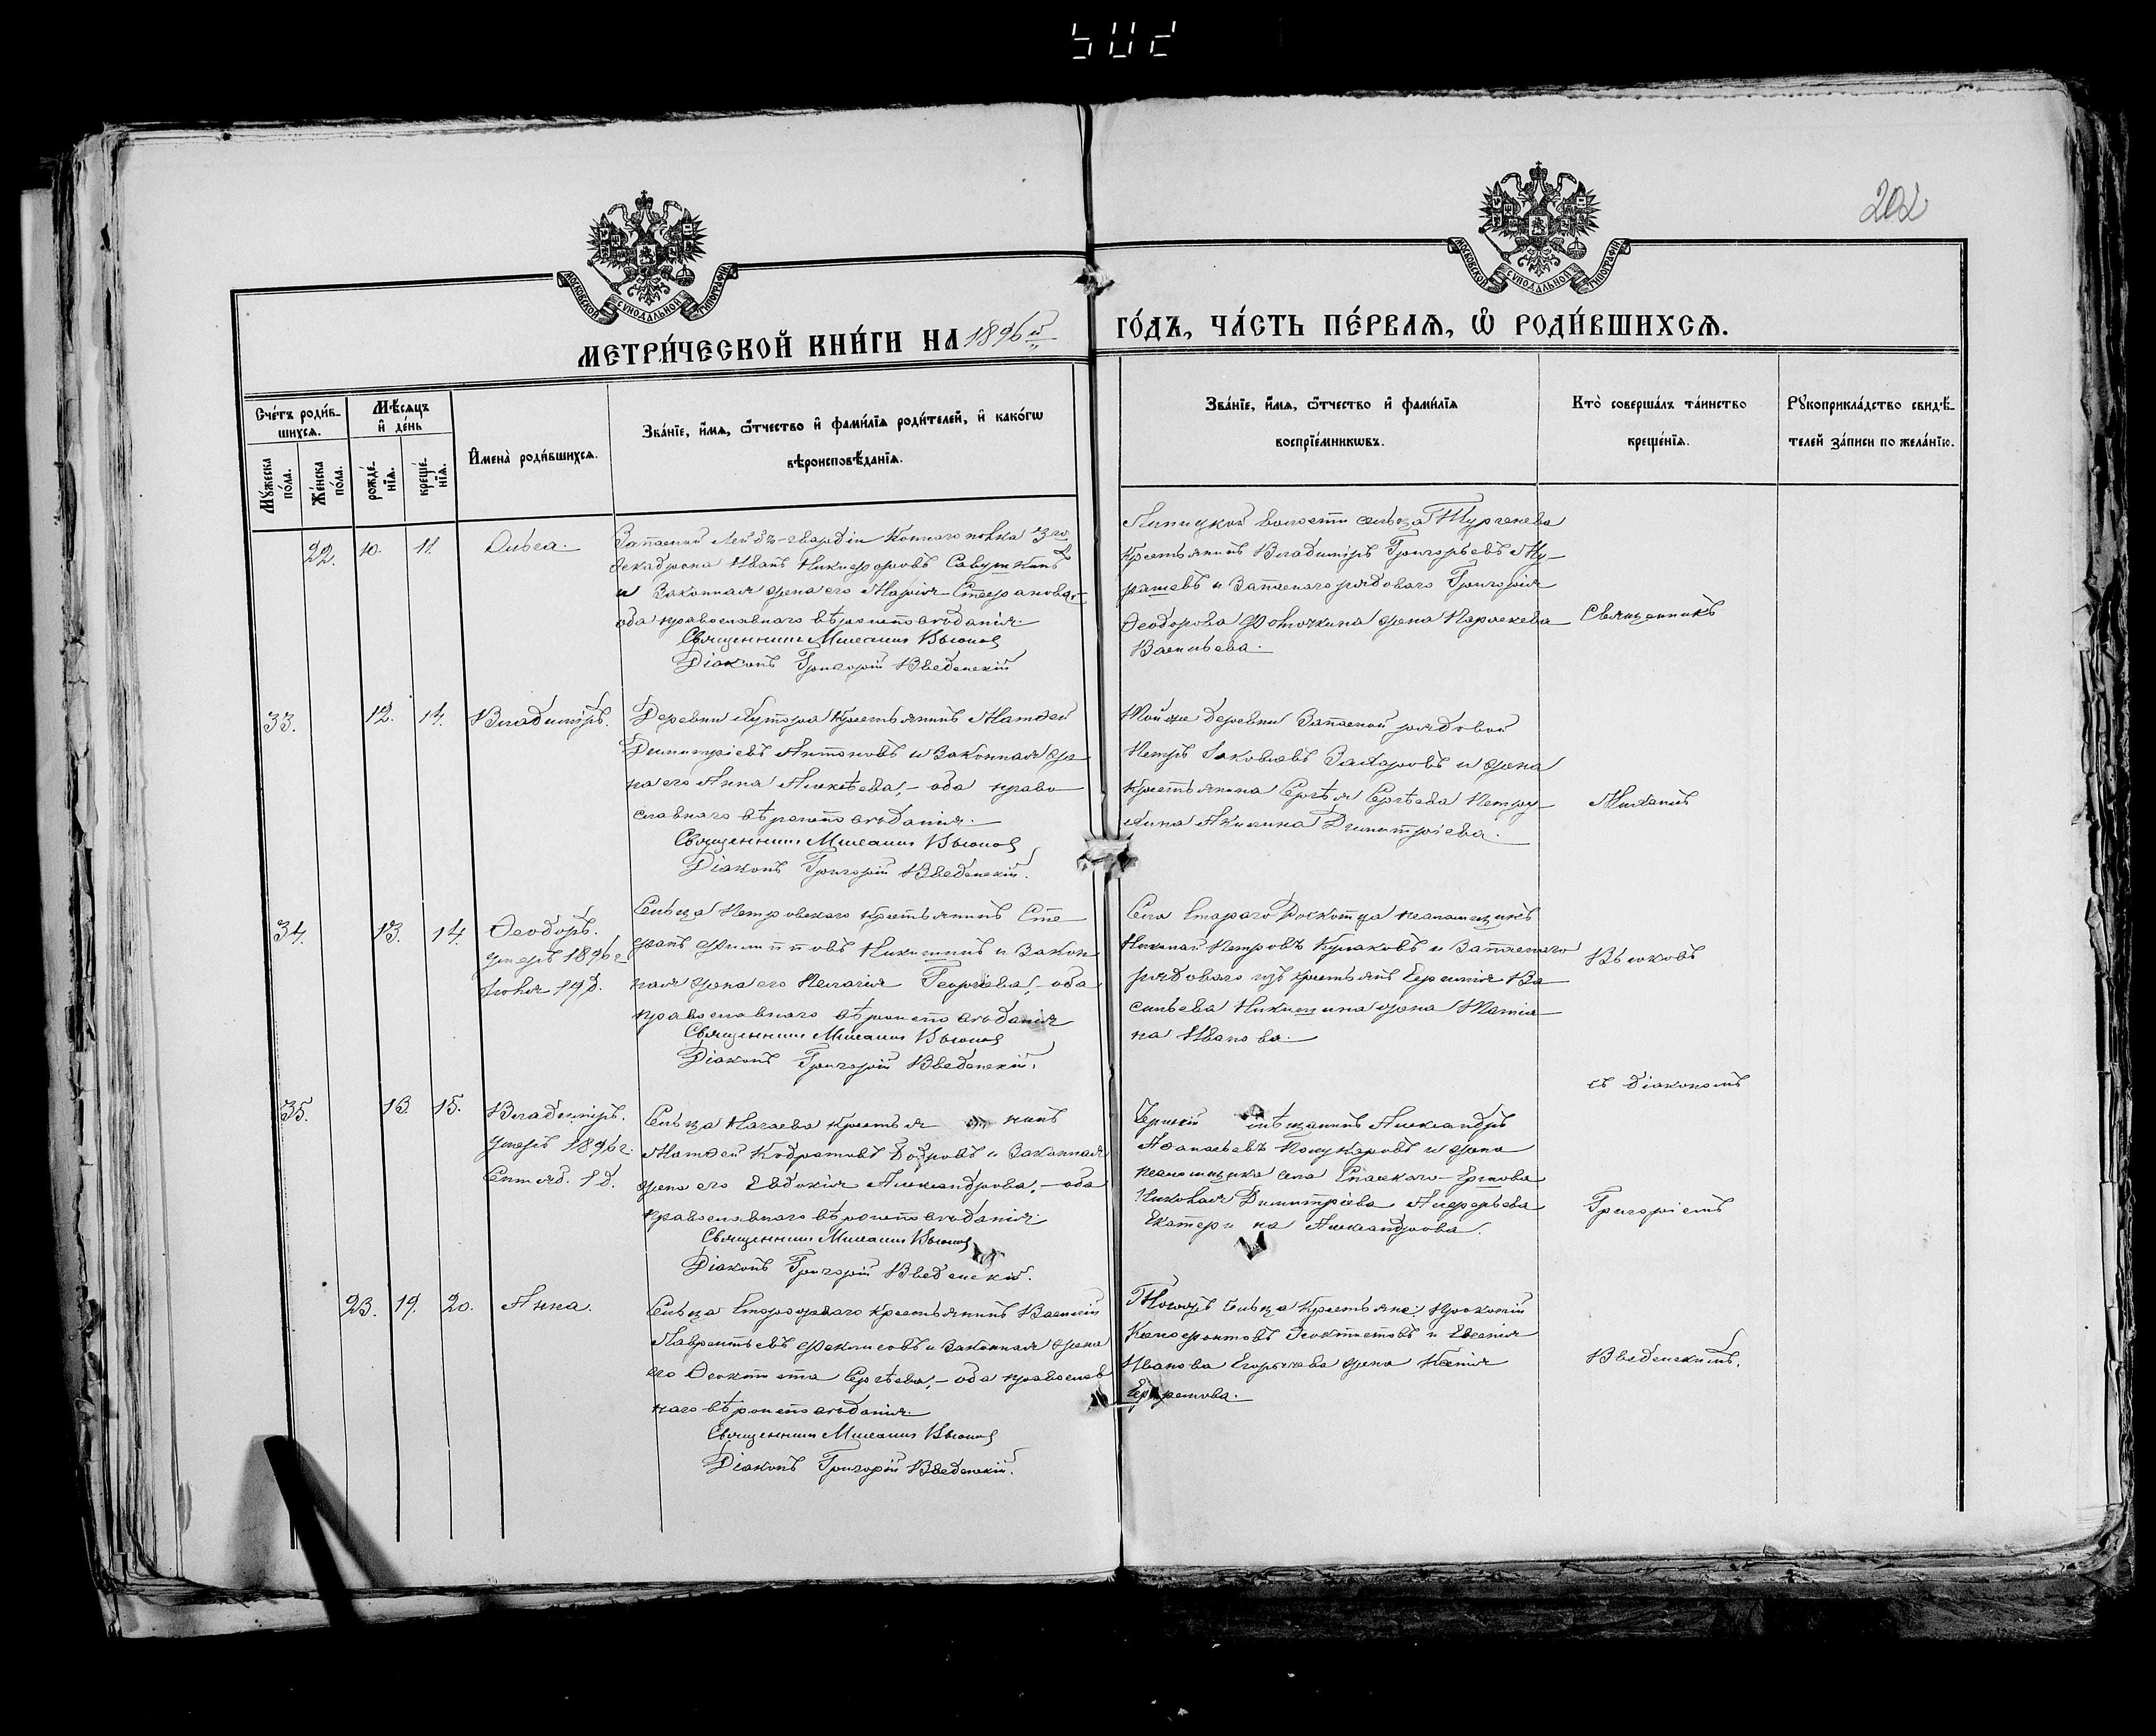 502
202
МОСКОВСКОЙ СѴНОДАЛЬНОЙ ТИПОГРАФІИ
МОСКОВСКОЙ СѴНОДАЛЬНОЙ ТИПОГРАФІИ
МЕТРИ́ЧЕСКОЙ КНИ́ГИ НА 1896й ГО́ДЪ, ЧА́СТЬ ПЕ́РВАѦ, Ѽ РОДИ́ВШИХСѦ.
Сче́тъ роди́в-
шихсѧ.
Мѣ́сѧцъ
и҆ де́нь
Мꙋ́жеска
по́ла.
Же́нска
по́ла.
рожде́-
нїѧ.
креще́-
нїѧ.
И҆мена̀ роди́вшихсѧ.
Зва́нїе, и҆́мѧ, ѻ҆́тчество и҆ фами́лїѧ роди́телей, и҆ како́гѡ
вѣроисповѣ́данїѧ.
Зва́нїе, и҆́мѧ, ѻ҆́тчество и҆ фами́лїѧ
воспрїе́мникѡвъ.
Кто̀ соверша́лъ та́инство
креще́нїѧ.
Рꙋкоприкла́дство свидѣ́-
телей за́писи по жела́нїю.
22. 10. 11. Ольга.
Запасной Лейбъ-гвардіи Коннаго полка 3го
эскадрона Иванъ Никифоровъ Савушкинъ
и законная жена его Марія Стефанова,-
оба православнаго вѣроисповѣданія.
Священникъ Михаилъ Вьюковъ
Діаконъ Григорій Введенскій
Липицкой волости сельца Тургенева
крестьянинъ Владиміръ Григорьевъ Му-
рашевъ и запаснаго рядоваго Григорія
Ѳеодорова Фоточкина жена Параскева
Васильева.
Священникъ
33. 12. 14. Владиміръ.
Деревни Хутора крестьянинъ Матѳей
Димитріевъ Антоновъ и законная же-
на его Анна Алексѣева,- оба право-
славнаго вѣроисповѣданія.
Священникъ Михаилъ Вьюковъ
Діаконъ Григорій Введенскій.
Той же деревни запасной рядовой
Петръ Іаковлевъ Захаровъ и жена
крестьянина Сергѣя Сергѣева Петру-
хина Акилина Димитріева.
Михаилъ
34. 13. 14. Ѳеодоръ.
умеръ 1896 г.
Іюля 19 д.
Сельца Петровскаго крестьянинъ Сте-
фанъ Филипповъ Никишинъ и закон-
ная жена его Пелагія Георгіева,- оба
православнаго вѣроисповѣданія
Священникъ Михаилъ Вьюковъ
Діаконъ Григорій Введенскій.
Села Стараго Роскотца псаломщикъ
Николай Петровъ Кулаковъ и запаснаго
рядоваго изъ крестьянъ Ефимія Ва-
сильева Никишина жена Татіа-
на Иванова.
Вьюковъ
съ діакономъ
35. 13. 15. Владиміръ.
умеръ 1896 г.
Сентяб. 1 д.
Сельца Нагаева крестьянинъ
Матѳей Кодратовъ Бобровъ и законная
жена его Евдокія Александрова,- оба
православнаго вѣроисповѣданія.
Священникъ Михаилъ Вьюковъ
Діаконъ Григорій Введенскій.
мѣщанинъ Александръ
Аѳанасьевъ и жена
псаломщика села Спасскаго
Николая Димитріева Алферьева
Екатерина Александрова.
Григоріемъ
23. 19. 20. Анна.
Сельца Сторожеваго крестьянинъ Василій
Лаврентьевъ Феклисовъ и законная жена
его Ѳеоктиста Сергѣева,- оба православ-
наго вѣроисповѣданія.
Священникъ Михаилъ Вьюковъ
Діаконъ Григорій Введенскій.
Тогожъ сельца крестьяне: Прокопій
Ксенофонтовъ Ѳеоктистовъ и Евсевія
Иванова жена Ксенія
Ефремова.
Введенскимъ.